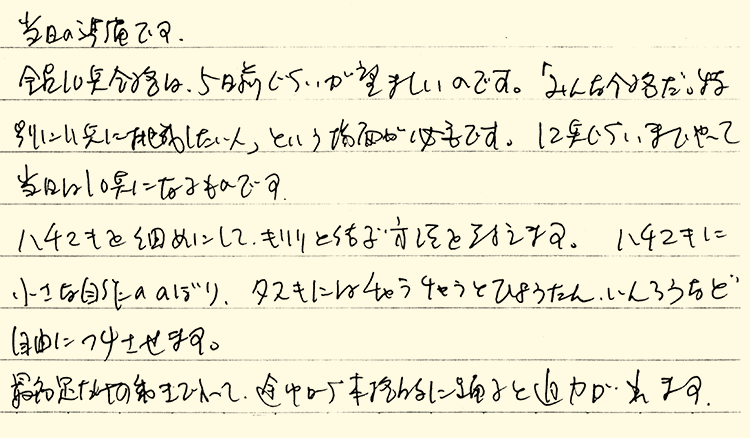 当日の準備です.
全員10点合格は、5日前ぐらいが望ましいのです。「みんな合格だ。特
別に11点に挑戦したい人」という場面が必要です。12点ぐらいまでやって
当日は10点になるものです.
ハチマキを細めにして、きりりと結ぶ方法を教えます。 ハチマキに
小さな自作ののぼり、タスキには4ちょう4ちょうとひょうたん、いんろうなど
自由につけさせます。
最初足だけの動きでやって、途中から本格的に踊ると迫力が出ます.